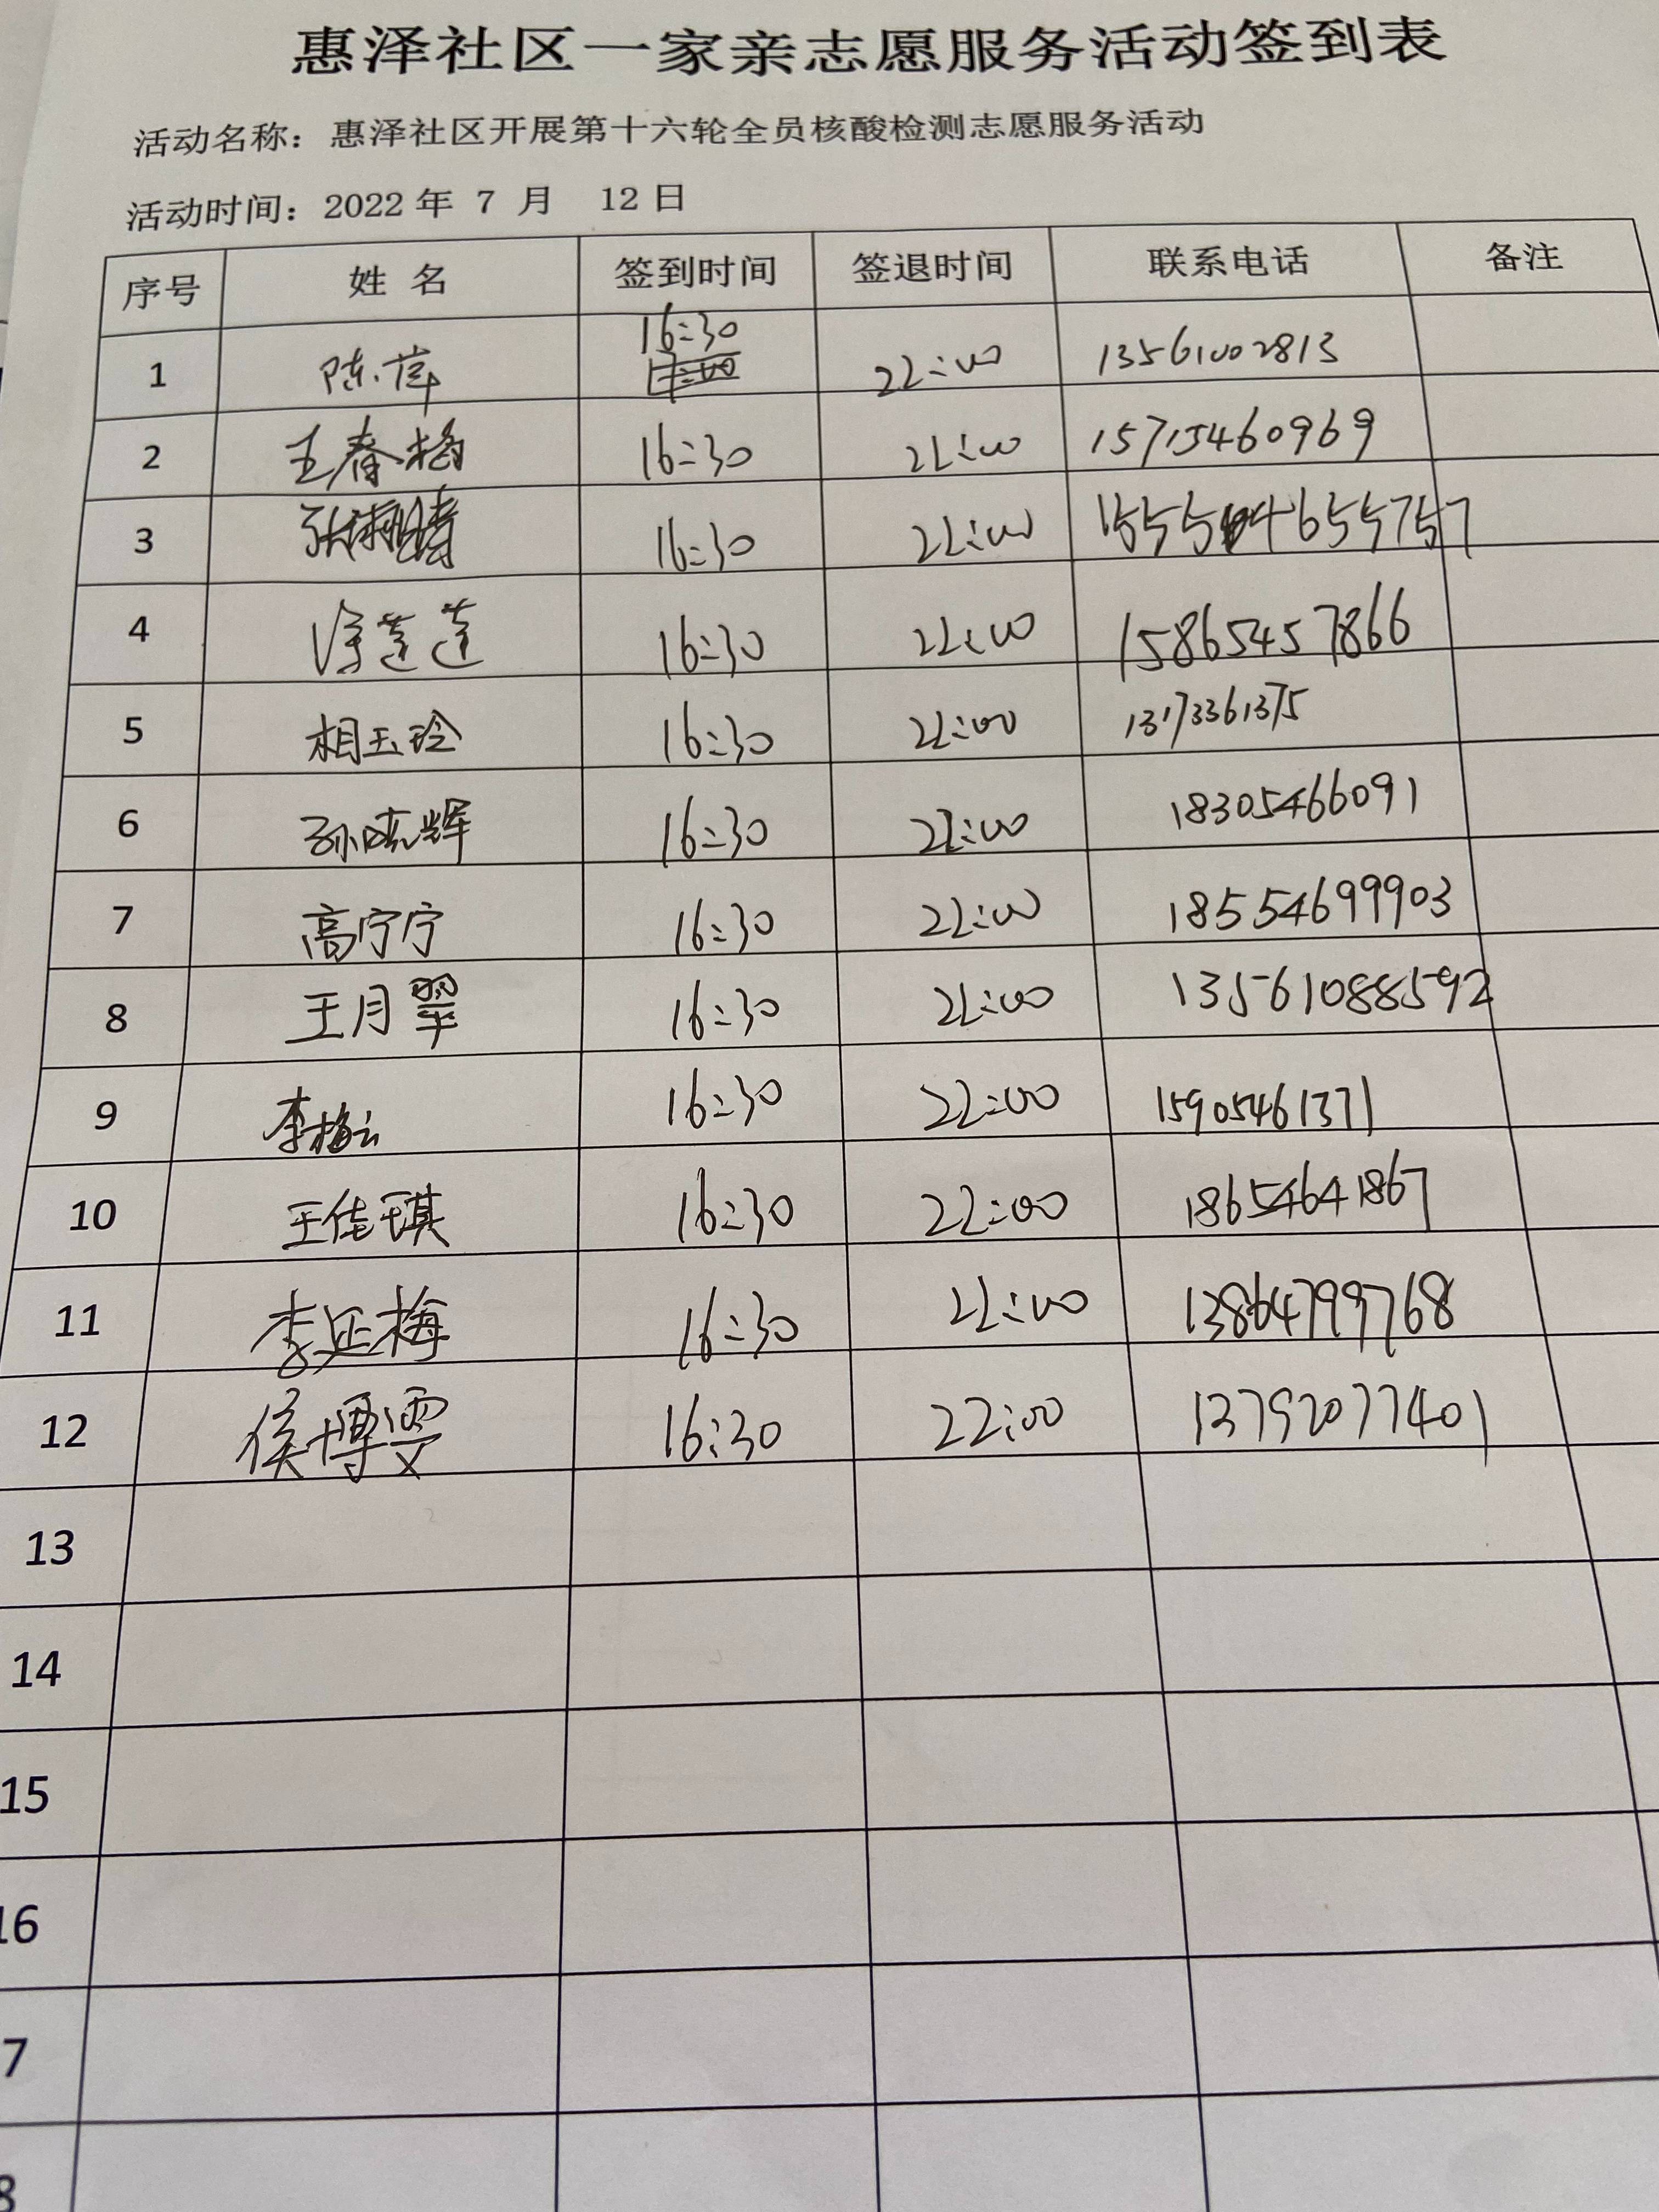 惠泽社区一家亲志愿服务活动签到表
活动名称：惠泽社区开展第十六轮全员核酸检测志愿服务活动
活动时间：2022 年 7 月 12 日
序号 姓 名 签到时间 签退时间 联系电话 备注
1 陈萍 16:30 22:00 13561002813
2 王春梅 16:30 22:00 15715460969
3 16:30 22:00
4 徐莲莲 16:30 22:00 15865457866
5 相玉玲 16:30 22:00 13173361375
6 孙晓辉 16:30 22:00 18305466091
7 高宁宁 16:30 22:00 18554699903
8 王月翠 16:30 22:00 13561088592
9 李梅云 16:30 22:00 15905461371
10 王佳琪 16:30 22:00 18654641867
11 李延梅 16:30 22:00 13864799768
12 侯博雯 16:30 22:00 13792077401
13
14
15
16
7
8